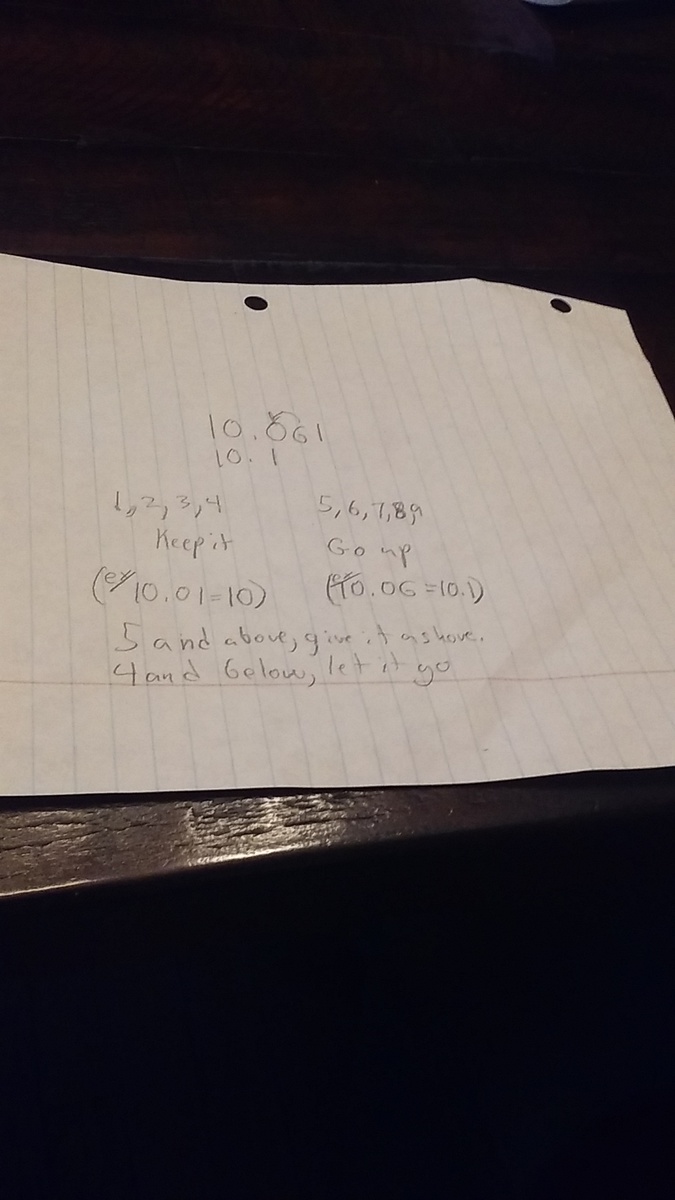 10.061
10.1
1, 2, 3, 4 5, 6, 7, 8, 9
Keep it Go up
(ex/10.01=10) (ex/10.06=10.1)
5 and above, give it a shove.
4 and below, let it go